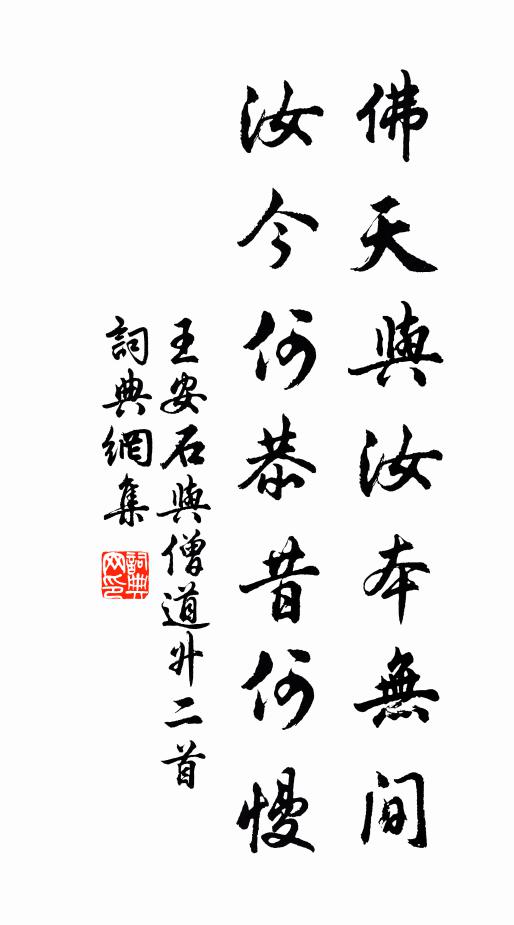 佛天與汝本無間
汝今何恭昔何慢
王安石與僧道升二首
詞典網集
詞典網印